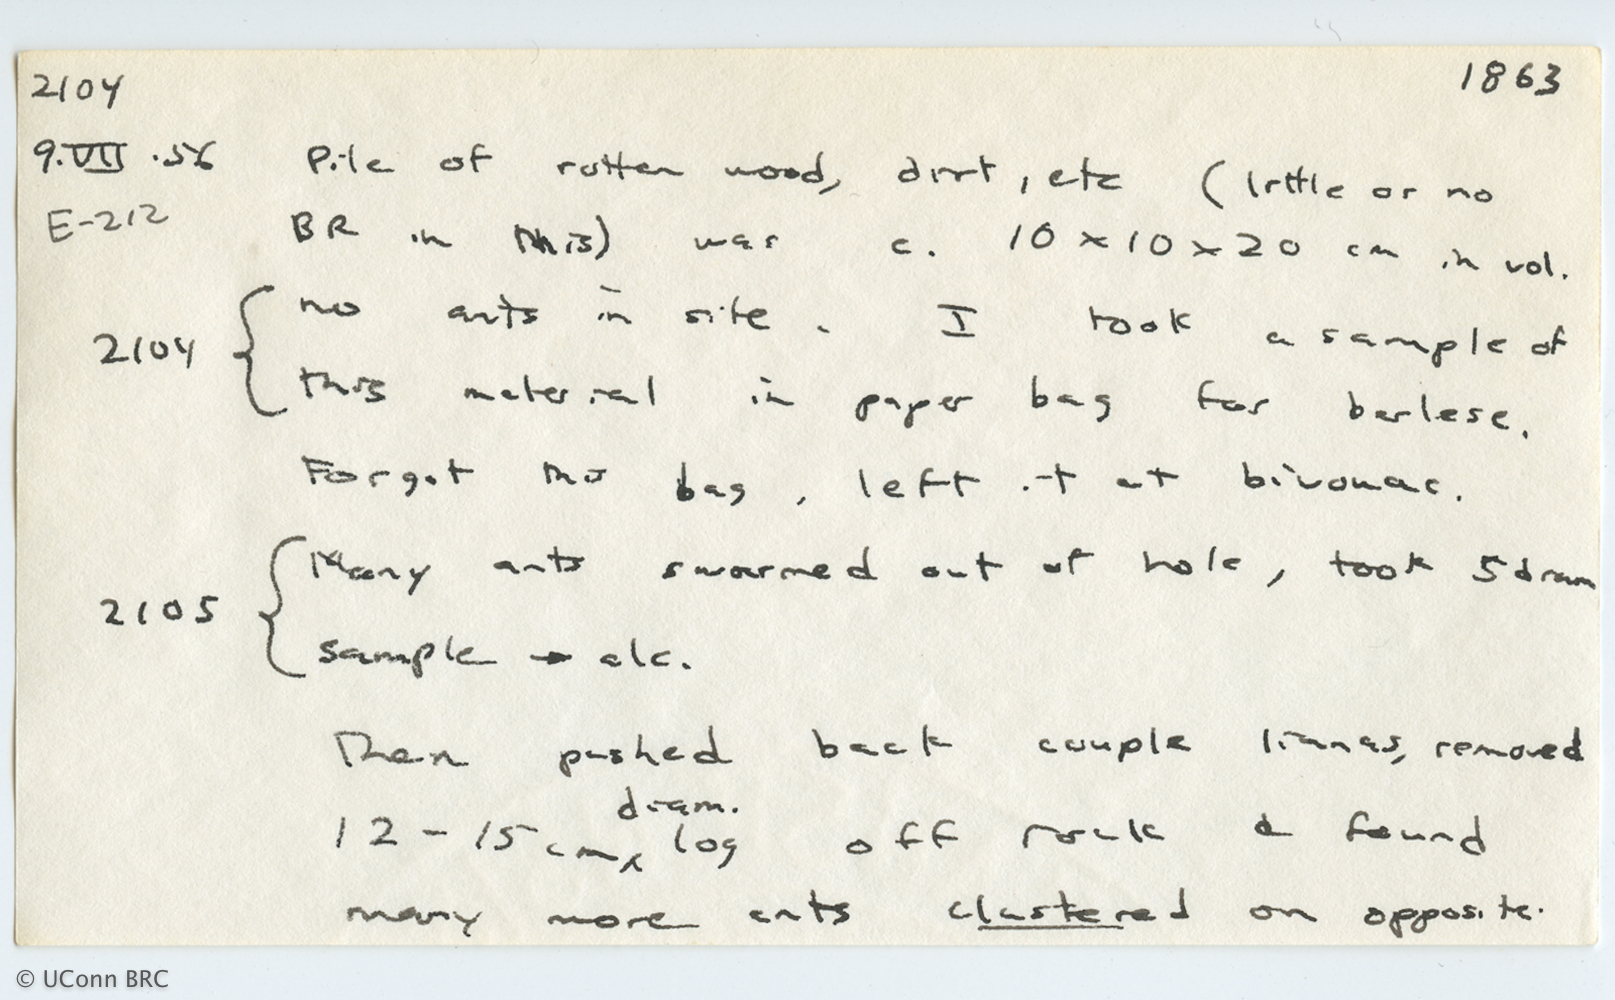 2104 1863
9.VII.56 Pile of rotten wood, dirt, etc (little or no
E-212 BR in this) was c. 10 x 10 x 20 cm in vol.
no ants in site. I took a sample of
2104 { this material in paper bag for berlese.
Forgot this bag, left it at bivouac.
Many ants swarmed out of hole, took 5 dram
2105 { sample → alc.
Then pushed back couple lianas, removed
diam.
12-15 cm ^ log off rock & found
many more ants clustered on opposite.
© UConn BRC